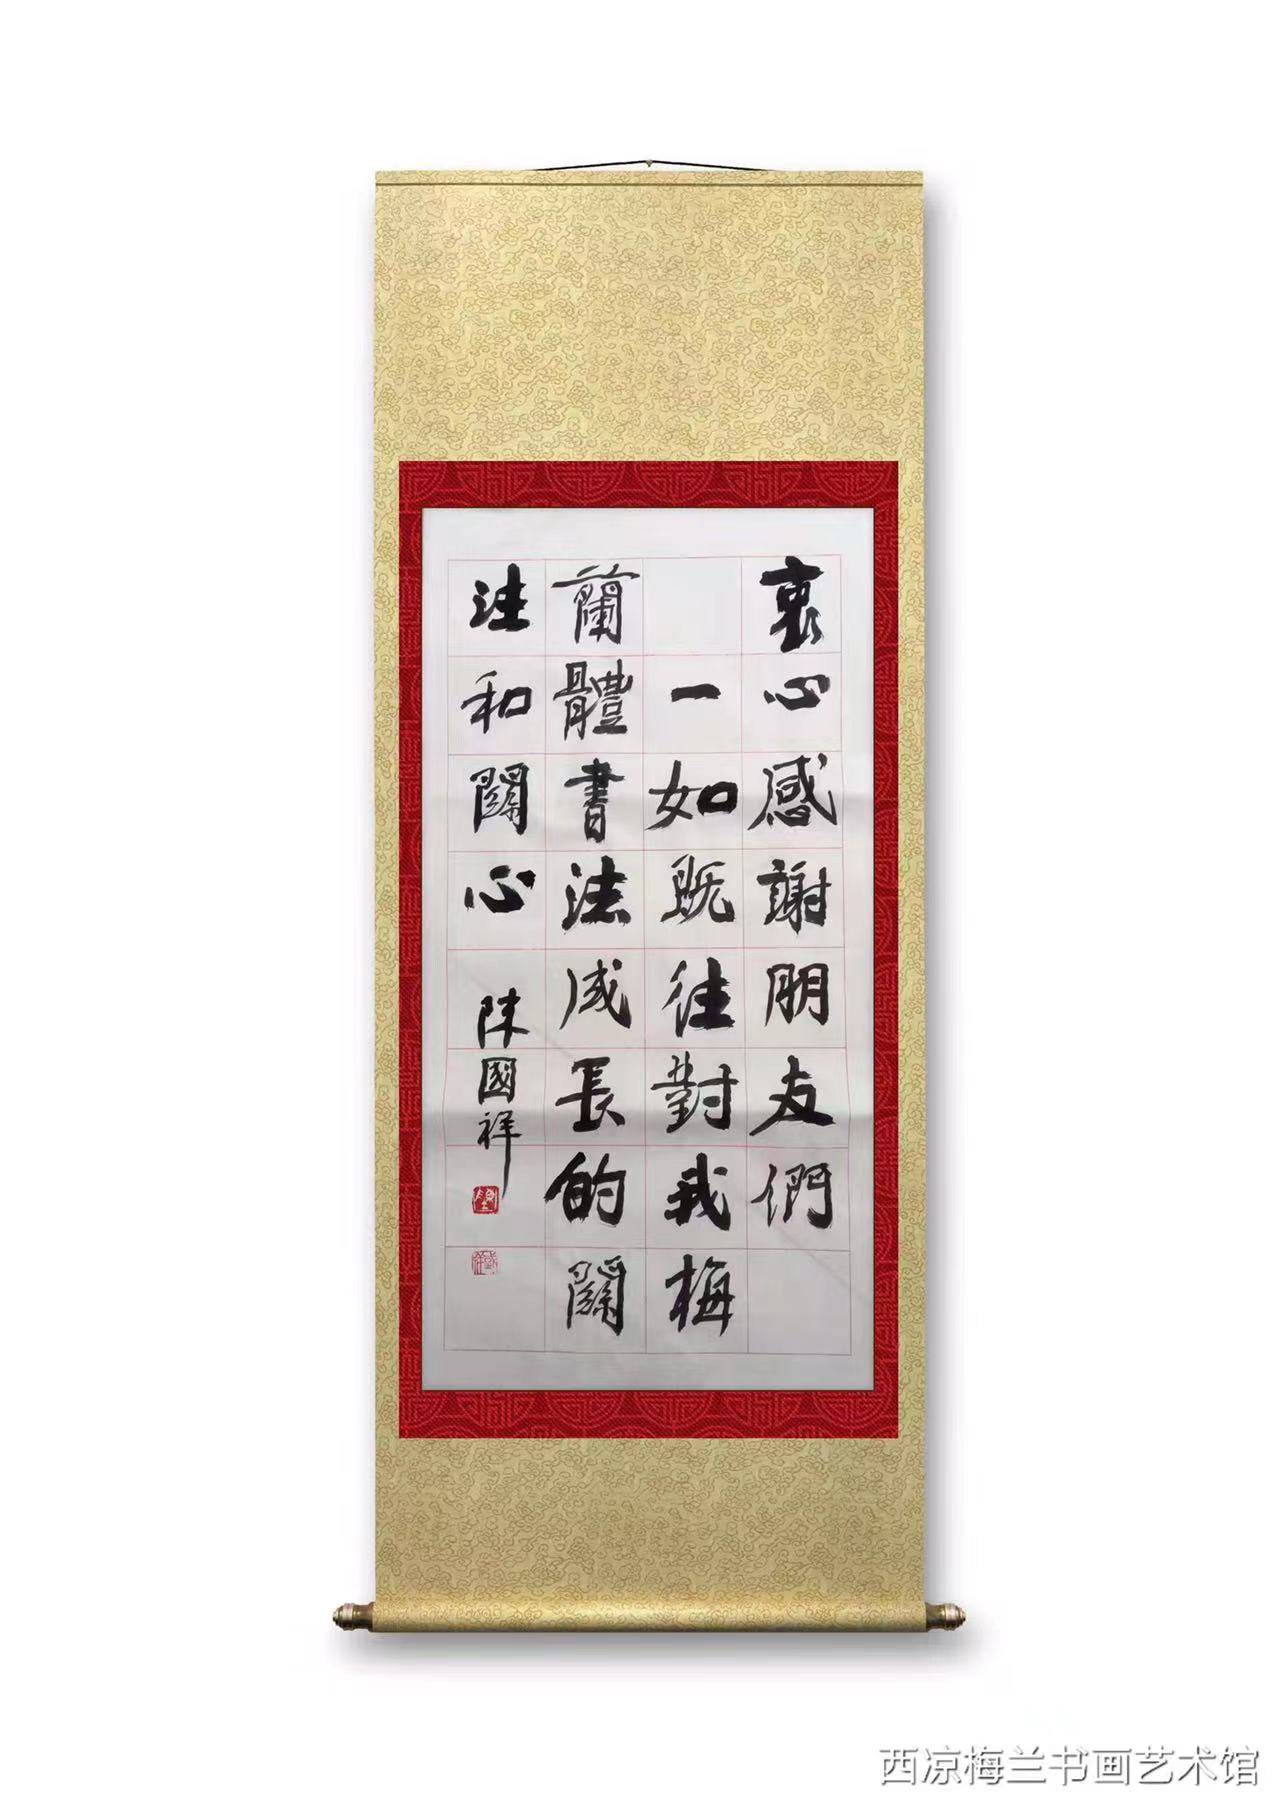 衷心感謝朋友們
一如既往對我梅
蘭體書法成長的關
注和關心
陳國祥
西凉梅兰书画艺术馆